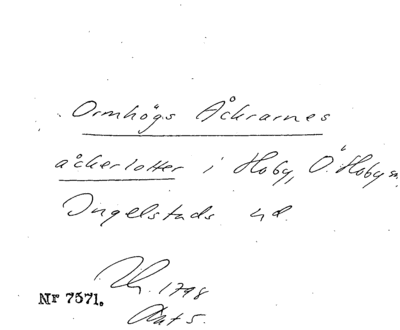 Ormhögs Åkrarnes
åkerlotter i Hoby, Ö. Hoby sn,
Ingelstads hd.
1798
Nr 7571.
Akt 5.